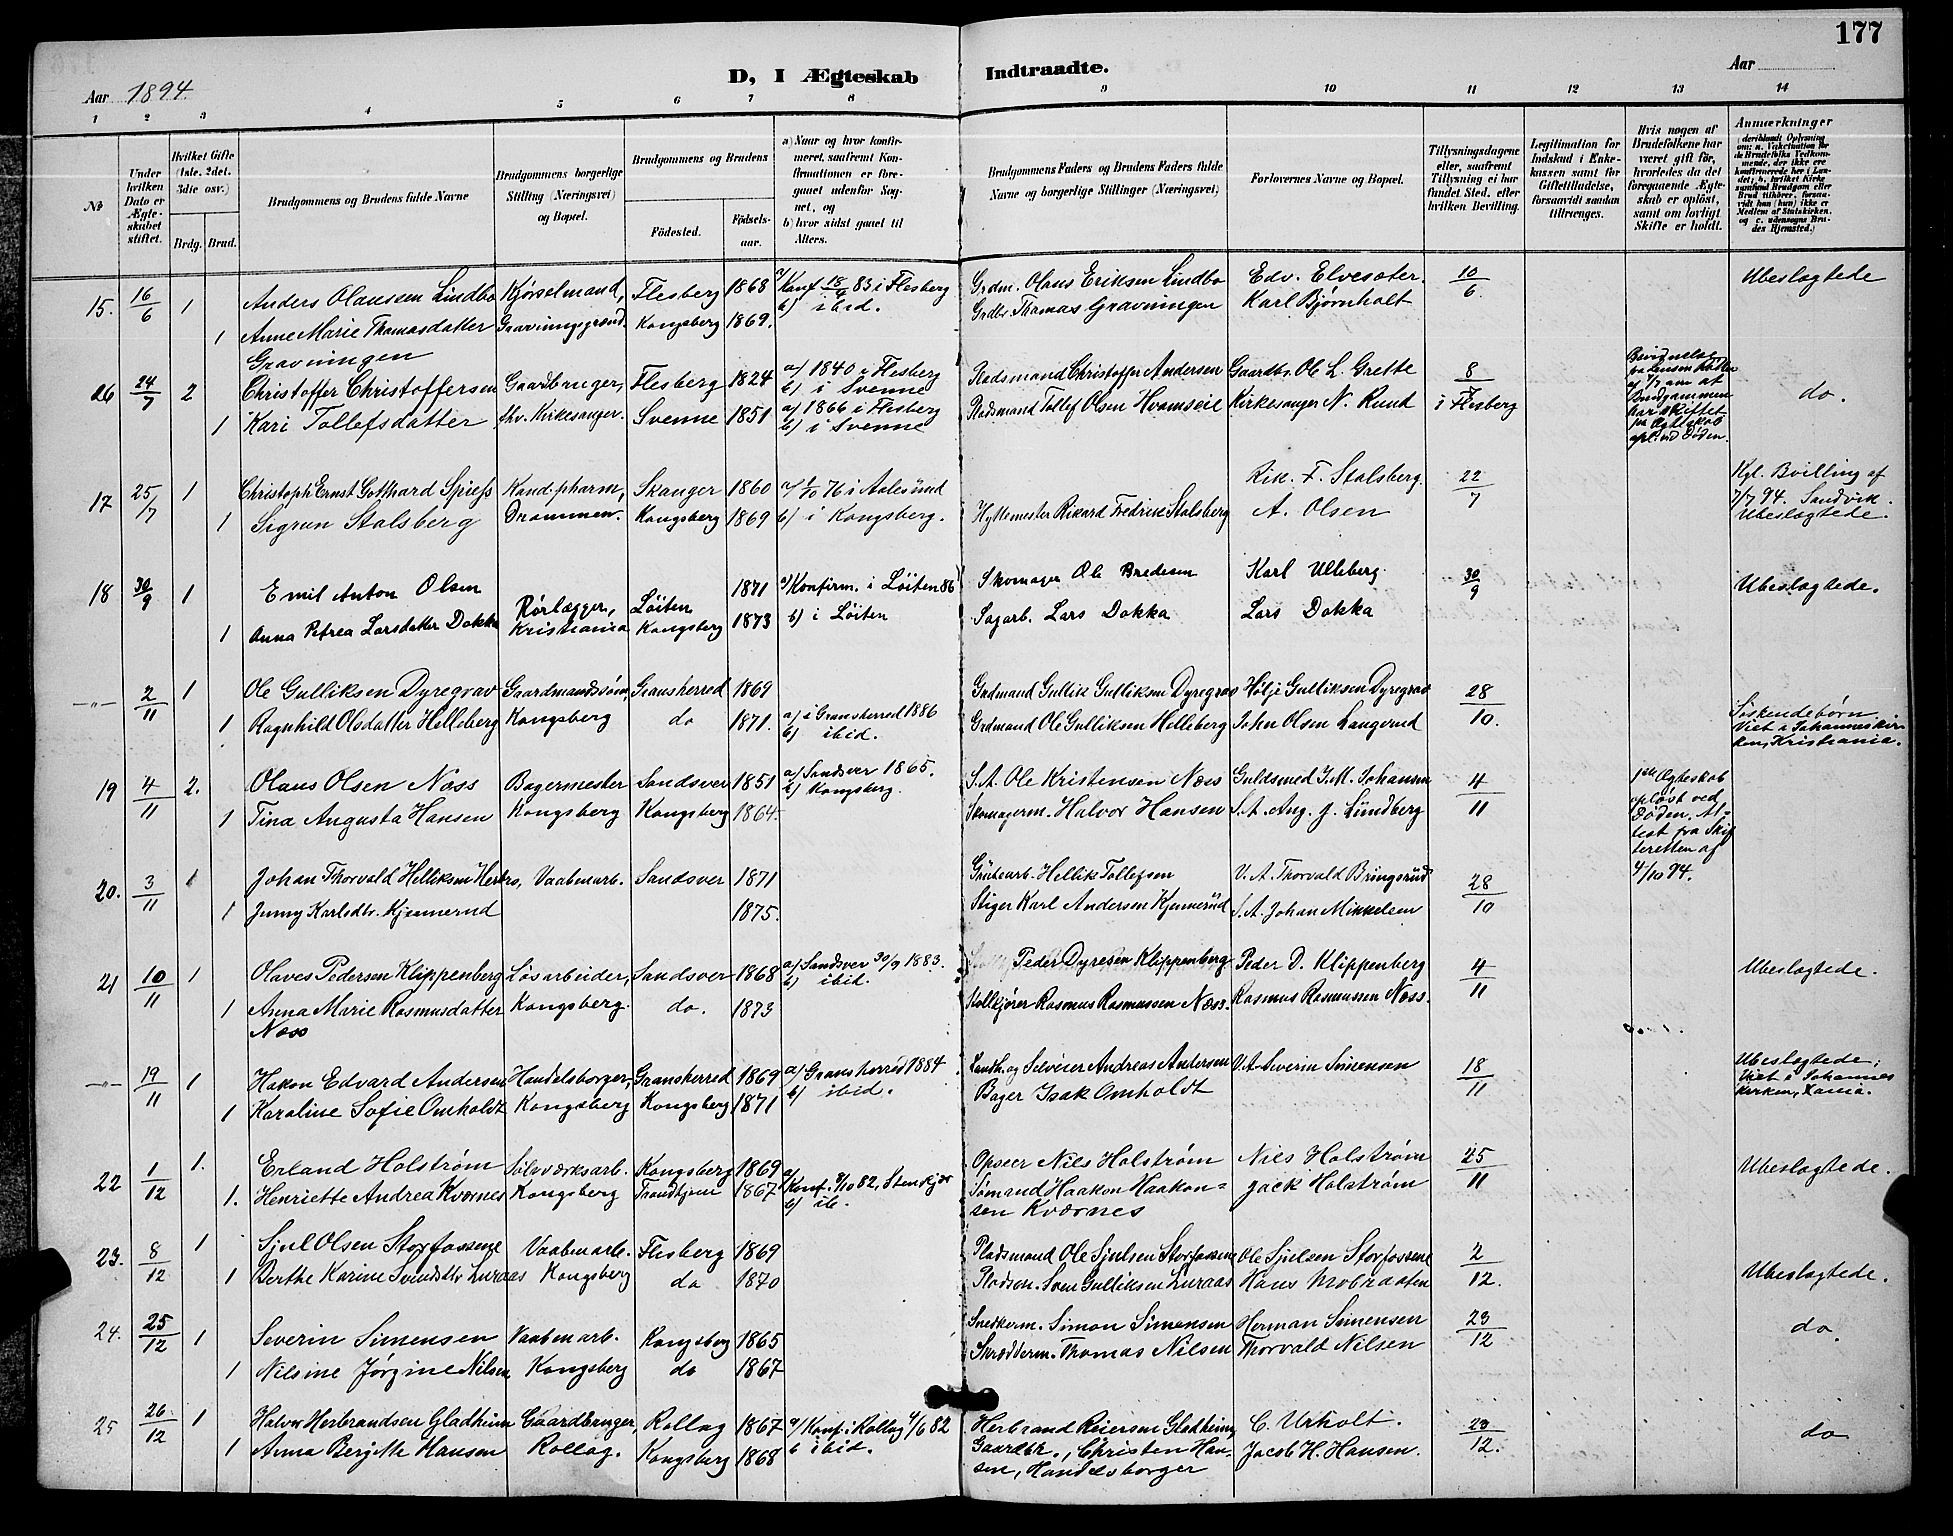 177
D, I Ægteskab Indtraadte.
Aar 1894.
Aar
1 2 3 4 5 6 7 8 9 10 11 12 13 14
No
Under hvilken Dato er Ægteskabet stiftet.
Hvilket Gifte (1ste, 2det, 3die osv.)
Brdg. Brud.
Brudgommens og Brudens fulde Navne
Brudgommens borgerlige Stilling (Næringsvei) og Bopæl.
Brudgommens og Brudens
Fødested. Fødselsaar.
a) Naar og hvor konfirmeret, saafremt Konfirmationen er foregaaet udenfor Sognet, og
b) hvor sidst gaaet til Alters.
Brudgommens Faders og Brudens Faders fulde Navne og borgerlige Stillinger (Næringsvei)
Forlovernes Navne og Bopæl.
Tillysningsdagene eller, saafremt Tillysning ei har fundet Sted, efter hvilken Bevilling.
Legitimation for Indskud i Enkekassen samt for Giftetilladelse, forsaavidt saadan tiltrænges.
Hvis nogen af Brudefolkene har været gift før, hvorledes da det foregaaende Ægteskab er opløst, samt om lovligt Skifte er holdt.
Anmærkninger
(deriblandt Oplysning om: a. Vakcination for de Brudefolks Vedkommende, der ikke ere konfirmerede her i Landet; b. hvilket Kirkesamfund Brudgom eller Brud tilhører, forsaavidt han (hun) ikke er Medlem af Statskirken, og c. udensogns Brudes Hjemsted.)
15. 16/6 1 Anders Olausen Lindbo Kjørselmand, Flesberg 1868 a) Konf 15/4 83 i Flesberg Grdm. Olaus Eriksen Lindbo Edv. Elvesæter 10/6 Ubeslægtede
1 Anne Marie Thomasdatter Gravningsgrend. Kongsberg 1869. b) ibid. Grdbr. Thomas Gravningen Karl Bjørnholt
Gravningen
26 24/7 2 Christoffer Christoffersen Gaardbruger, Flesberg 1824 a) 1840 i Flesberg b) i Svenne Pladsmand Christoffer Andersen Gaardbr. Ole L. Grette 8/7 do.
1 Kari Tollefsdatter Kirkesanger. Svenne 1851 a) 1866 i Flesberg b) i Svenne Pladsmand Tollef Olsen Kirkesanger N. Ruud i Flesberg
at Brudgommen har skiftet
opl. ved Døden.
17 25/7 1 Christoph Ernst Gotthard Spiess Kand. pharm, Skanger 1860 a) 1/10 76 i Aalesund Rik. F. Stalsberg. 22/7 Kgl. Bvilling af
1 Sigrun Stalsberg Drammen. Kongsberg 1869 b) i Kongsberg. Hyttemester Rikard Fredrik Stalsberg A. Olsen 7/7 94. Sandvik.
Ubeslægtede.
18 30/9 1 Emil Anton Olsen Rørlægger, Løiten 1871 a) Konfirm. i Løiten 86 Skomager Ole Bredesen Karl Ulleberg 30/9 Ubeslægtede.
1 Anna Petrea Larsdatter Dokka Kristiania Kongsberg 1873 b) i Løiten Sagarb. Lars Dokka Lars Dokka
–"– 2/11 1 Ole Gulliksen Dyregrav Gaardmandssøn, Gransherred 1869 Grdmand Gullik Gulliksen Dyregrav Hølje Gulliksen Dyregrav 28/10.
1 Ragnhild Olsdatter Helleberg Kongsberg do 1871. a) i Gransherred 1886 b) ibid. Grdmand Ole Gulliksen Helleberg John Olsen Langerud Søskendebørn
Viet i Johanneskirken, Kristiania.
19 4/11 2. Olaus Olsen Næss Bagermester Sandsver 1851 a) Sandsver 1865. b) Kongsberg. S.A. Ole Kristensen Næss Guldsmed I.M. Johansen 4/11
1 Tina Augusta Hansen Kongsberg Kongsberg 1864. Skomagerm. Halvor Hansen S.A. Aug. J. Lundberg
1ste Ægteskab opløst ved Døden. Attest fra Skifteretten af 4/10 94.
20. 3/11 1 Johan Thorvald Helliksen Vaabenarb. Sandsver 1871 Grubearb. Hellik Tollefsen V.A. Thorvald Bringerud 28/10
1 Jenny Karlsdtr. Kjennerud 1875. Stiger Karl Andersen Kjennerud S.A. Johan Mikkelsen
21 10/11 1 Olaves Pedersen Klippenberg Løsarbeider, Sandsver 1868 a) Sandsver 30/9 1883. b) ibid. Peder Dyresen Klippenberg Peder D. Klippenberg 4/11 Ubeslægtede.
1 Anna Marie Rasmusdatter Kongsberg. do. 1873 Rasmus Rasmussen Næss. Rasmus Rasmussen Næss.
Næss
–"– 19/11 1 Hakon Edvard Andersen Handelsborger, Gransherred 1869 a) Gransherred 1884 b) ibid. Landh. og Selveier Andreas Andersen V.A. Severin Simensen 18/11 Ubeslægtede;
1 Karoline Sofie Omholdt Kongsberg Kongsberg 1871 Bager Isak Omholdt Viet i Johannes kirken, Xania.
22 1/12 1. Erland Holstrøm Sølvværksarb. Kongsberg 1869 a) Konf. 8/10 82, Stenkjær Opseer Nils Holstrøm Nils Holstrøm 25/11 Ubeslægtede.
1. Henriette Andrea Kværnes Kongsberg Trondhjem 1867 b) ib. Sømand Haakon Haakonsen Kværnes Jack Holstrøm
23. 8/12 1 Sjul Olsen Storfossene Vaabenarb. Flesberg 1869 Pladsmand Ole Sjulsen Storfossene Ole Sjulsen Storfossene 2/12. Ubeslægtede.
1 Berthe Karine Svendsdtr. Luraas Kongsberg do 1870 Pladsm. Sven Gulliksen Luraas Hans Mobraaten
24. 25/12 1 Severin Simensen Vaabenarb. Kongsberg 1865 Snedkerm. Simon Simensen Herman Simensen 23/12 do.
1 Nilsine Jørgine Nilsen Kongsberg do 1867 Skrædderm. Thomas Nilsen Thorvald Nilsen
25 26/12 1 Halvor Herbrandsen Gladheim Gaardbruger, Rollag 1867 a) Konf. i Rollag 4/6 82 Herbrand Reiersen Gladheim, C. Urholt. 23/12. do
1 Anna Bergitte Hansen Rollag. Kongsberg 1868 b ibid. Gaardbr., Christen Hansen, Handelsborger Jacob H. Hansen.